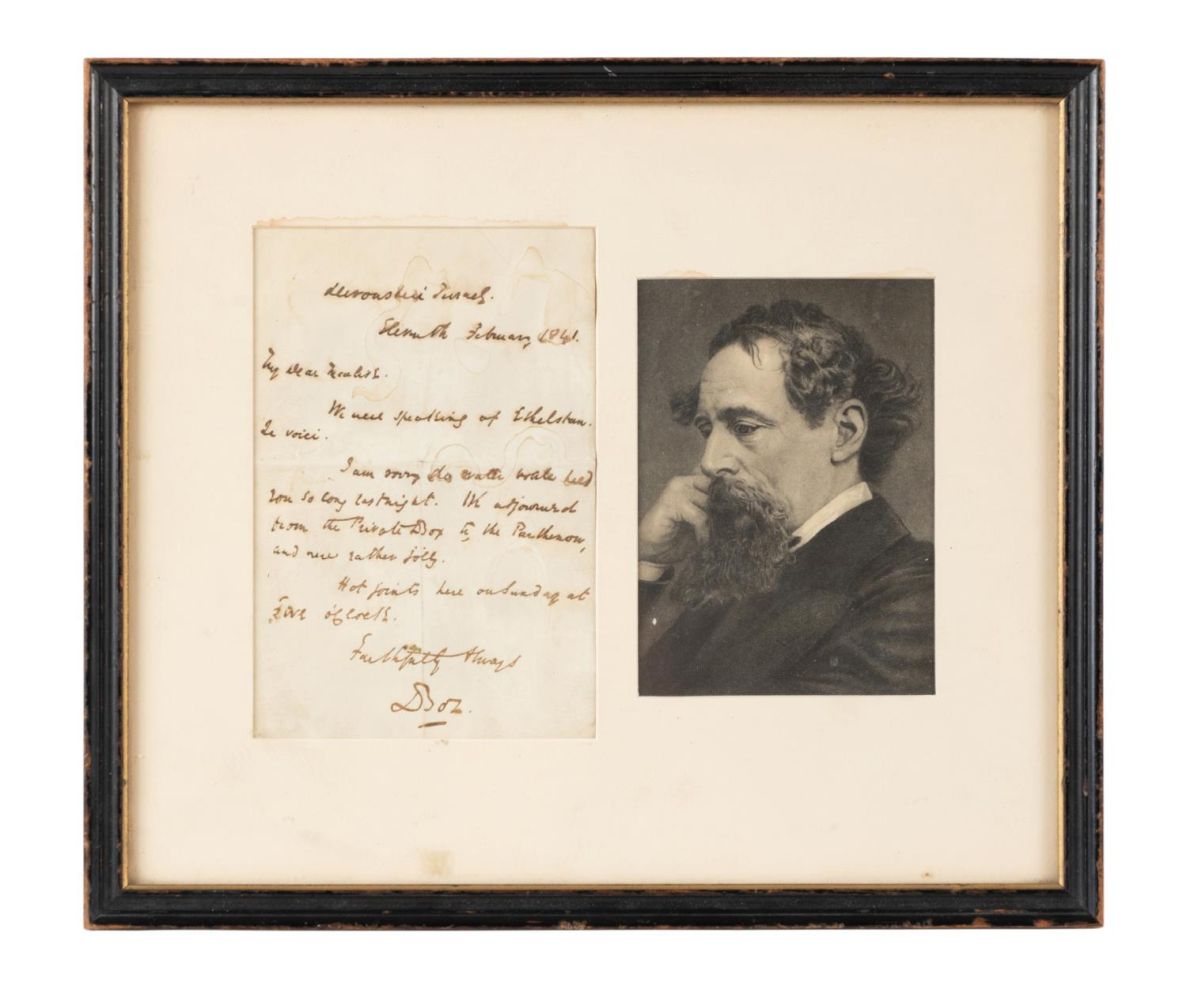 Devonshire Terrace.
Eleventh February 1841.
My dear Maclise.
We were speaking of Ethelstan.
Le voici.
I am sorry to have kept
you so long last night. We adjourned
from the Private Box to the Parthenon,
and were rather jolly.
Hot joints here on Sunday at
Five o'Clock.
Faithfully Always
Boz.